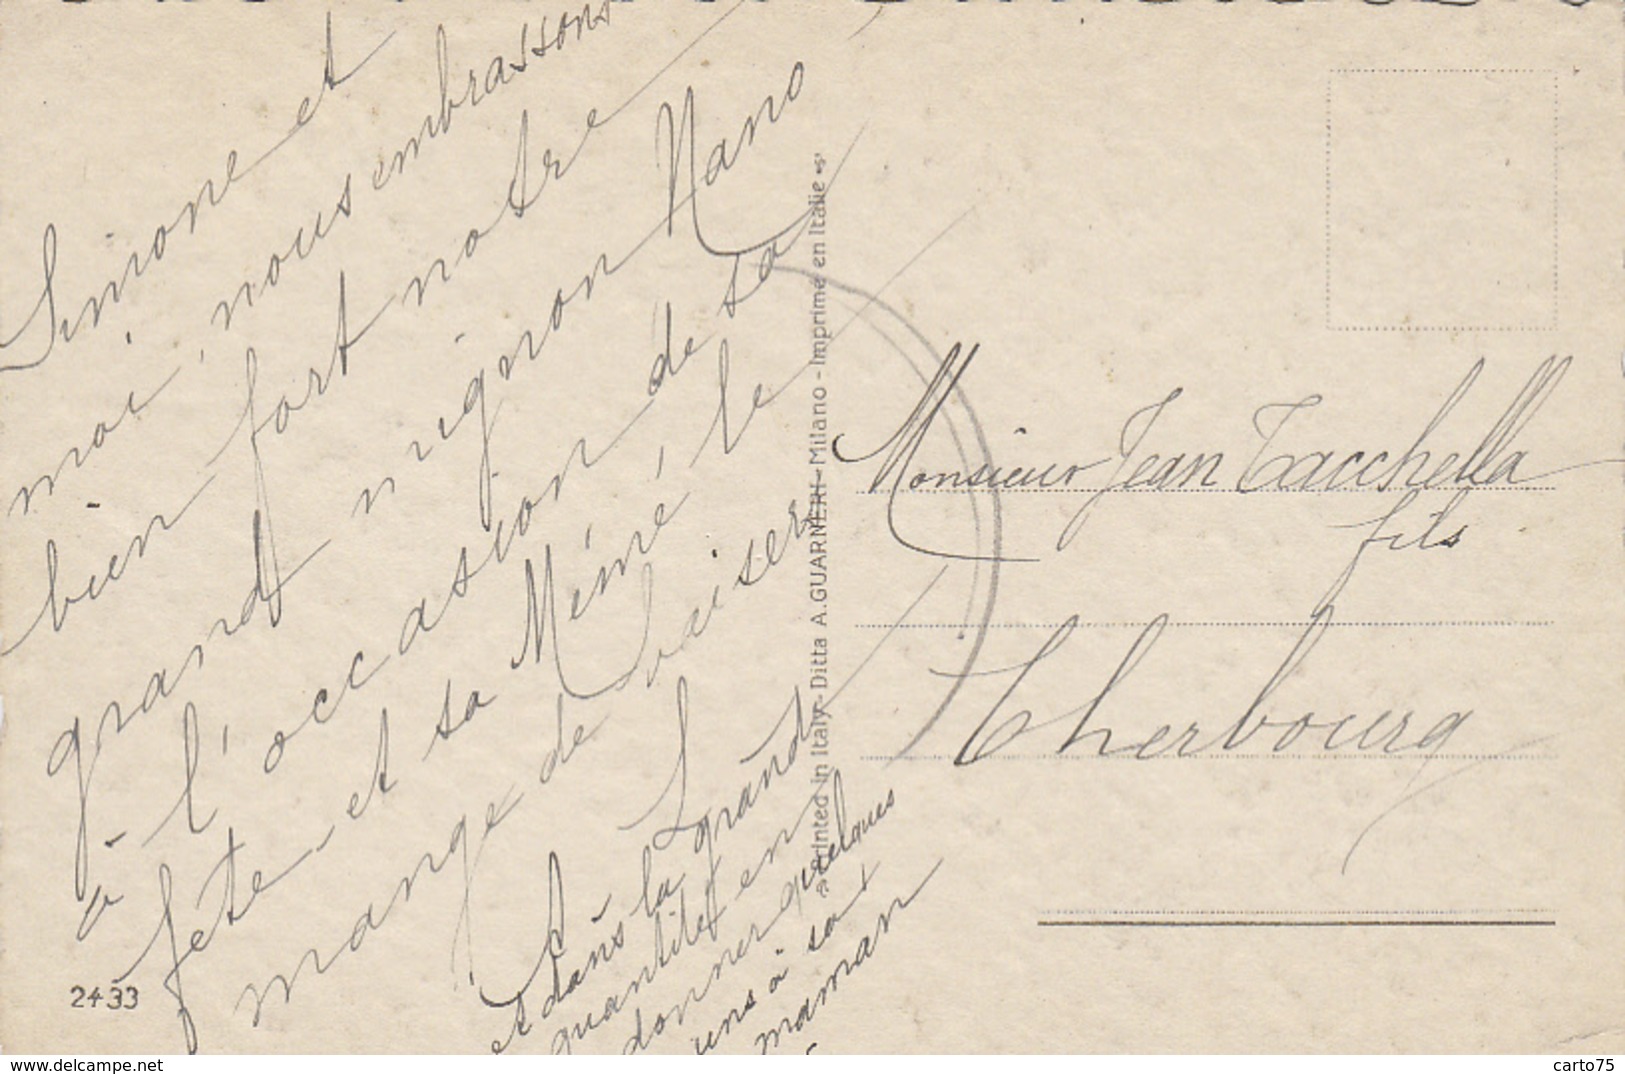 Simone et
moi, nous embrassons
bien fort notre
grand mignon Nano
à l'occasion de sa
fête et sa Mémé, le
mange de baisers
et dans la grande
quantité en
donner quelques
uns à sa
maman
Printed in Italy - Ditta A. GUARNERI - Milano - Imprimé en Italie
Monsieur Jean Tacchella
fils
Cherbourg
2433
www.delcampe.net
carto75